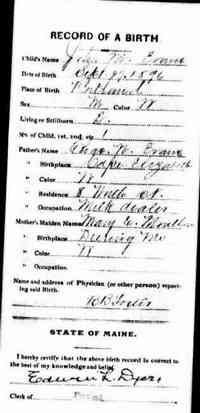 RECORD OF A BIRTH.
Child's Name John M. Evans
Date of Birth Sept. 1896
Place of Birth Portland
Sex M. Color W
Living or Stillborn L.
No. of Child, 1st, 2nd, etc. 1
Father's Name Evans
" Birthplace Cape Elizabeth
" Color W
" Residence Wells st.
" Occupation Milk dealer
Mother's Maiden Name Mary E.
" Birthplace Deering Me
" Color W
" Occupation.
Name and address of Physician (or other person) reporting said Birth.
STATE OF MAINE.
I hereby certify that the above birth record is correct to
the best of my knowledge and belief.
Edwin L. Dyer
Clerk of